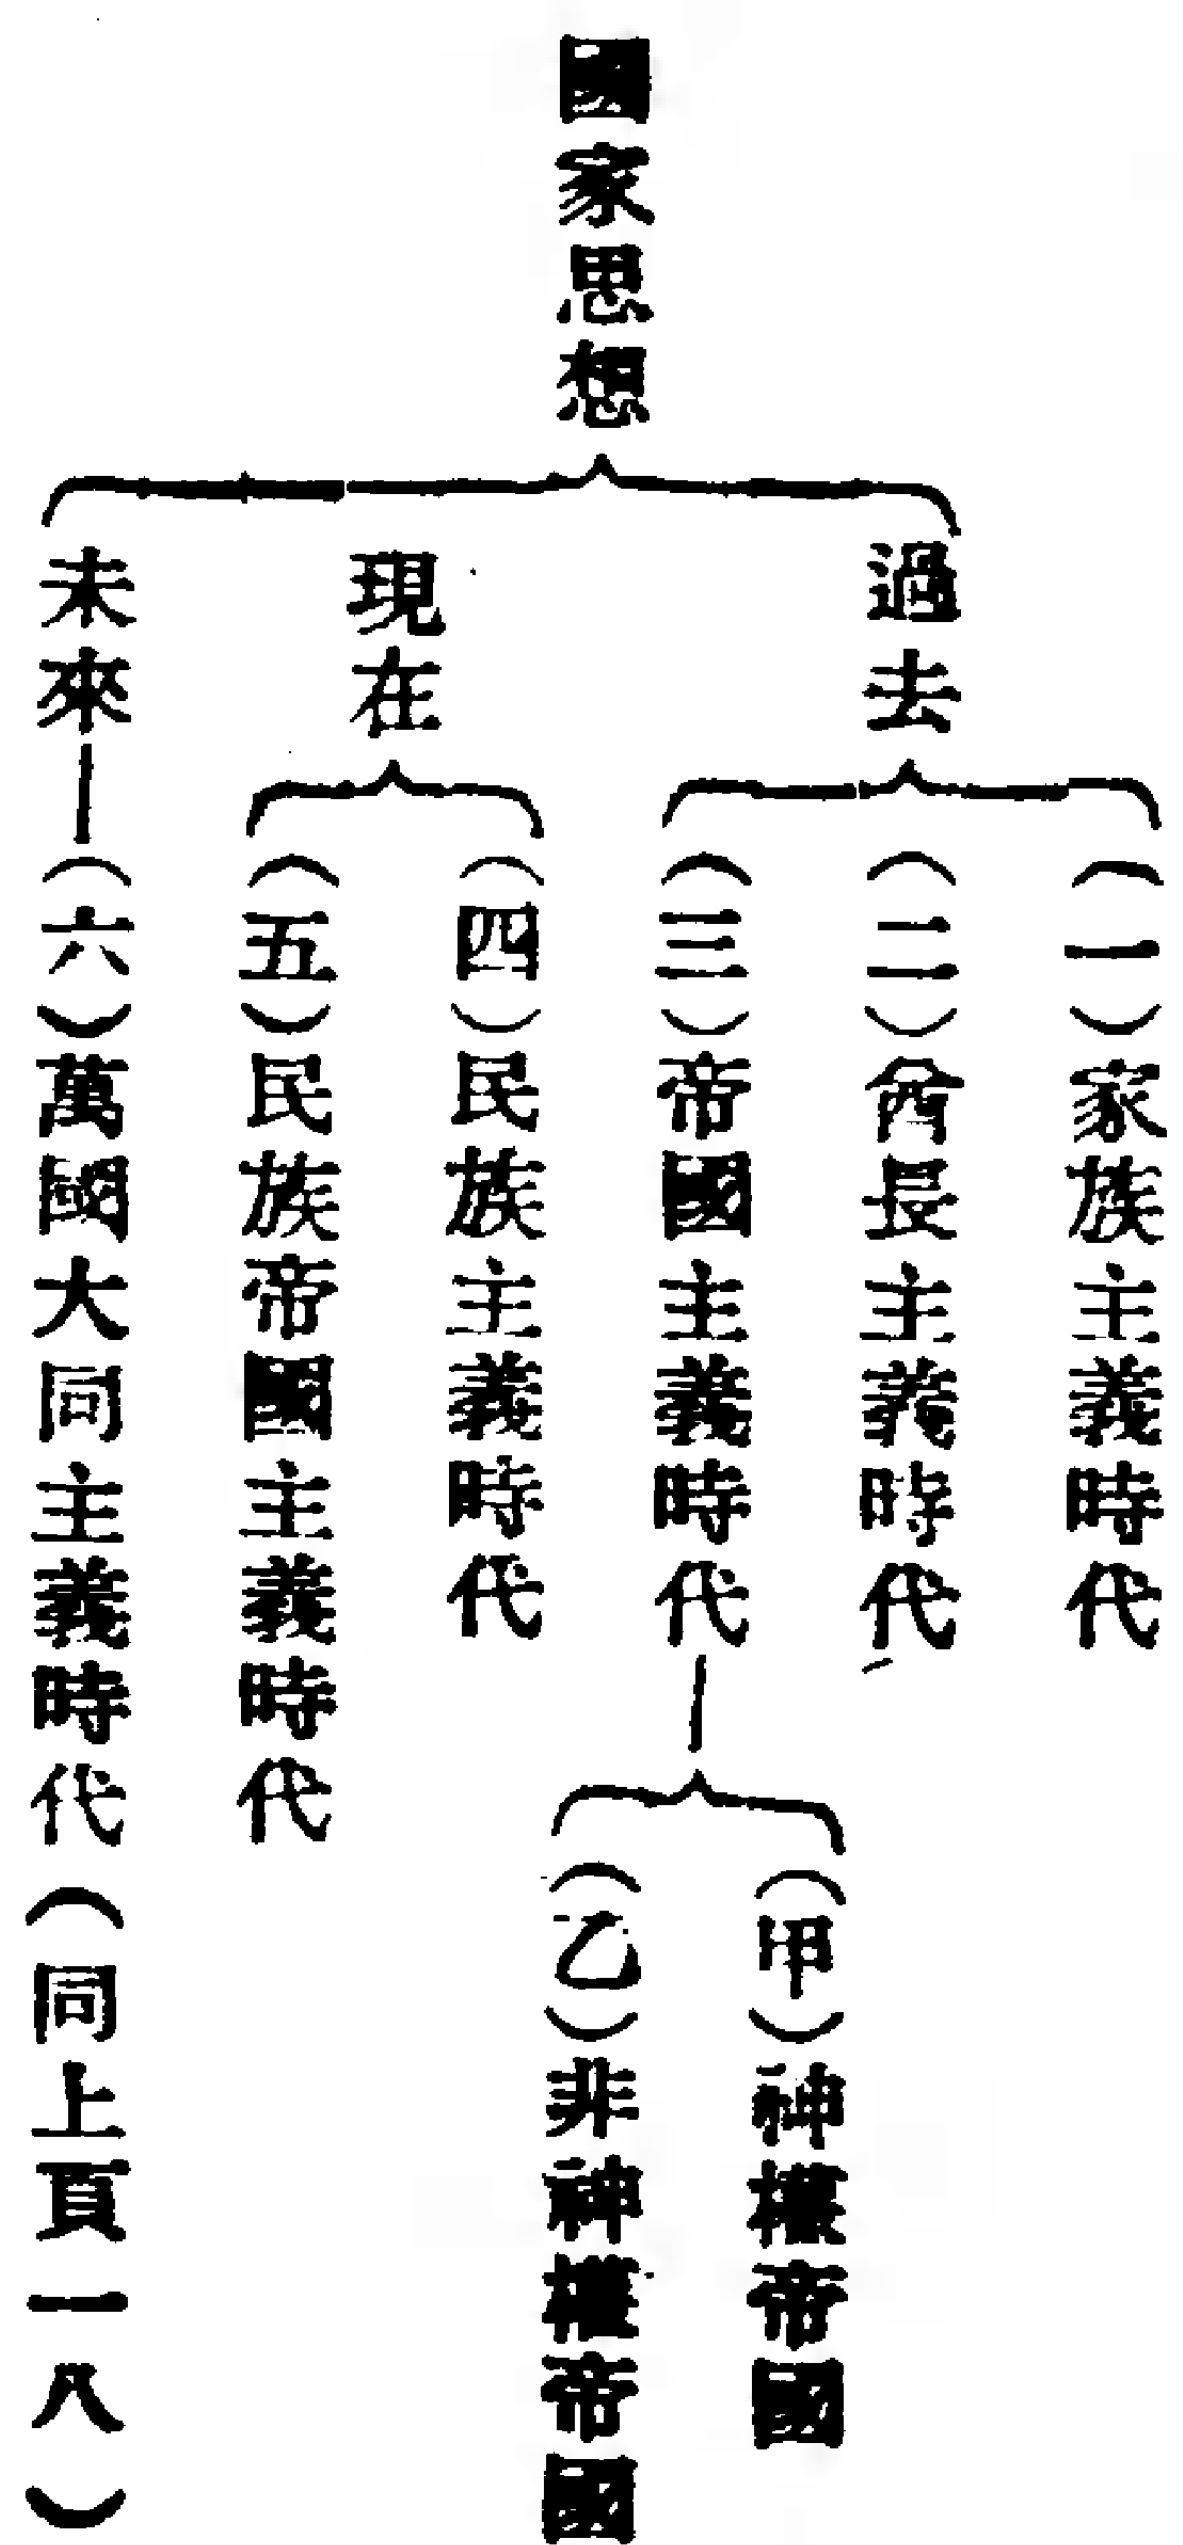 國家思想
過去
(一)家族主義時代
(二)酋長主義時代
(三)帝國主義時代
(甲)神權帝國
(乙)非神權帝國
現在
(四)民族主義時代
(五)民族帝國主義時代
未來
(六)萬國大同主義時代(同上頁一八)